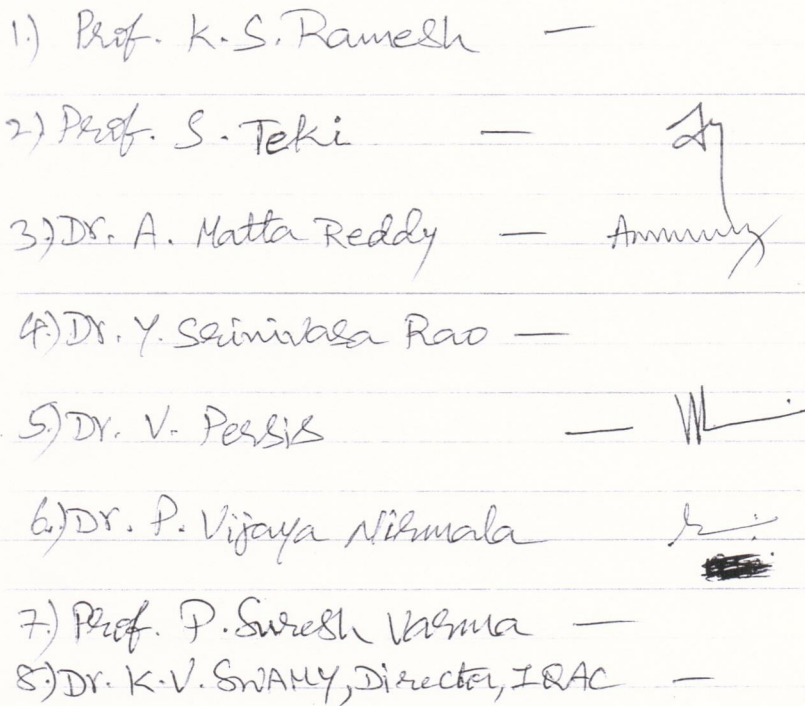 1.) Prof. K.S. Ramesh —
2) Prof. S. Teki —
3) Dr. A. Matta Reddy —
4.) Dr. Y. Srinivasa Rao —
5) Dr. V. Persis —
6.) Dr. P. Vijaya Nirmala
7.) Prof. P. Suresh Varma —
8.) Dr. K.V. SWAMY, Director, IQAC —